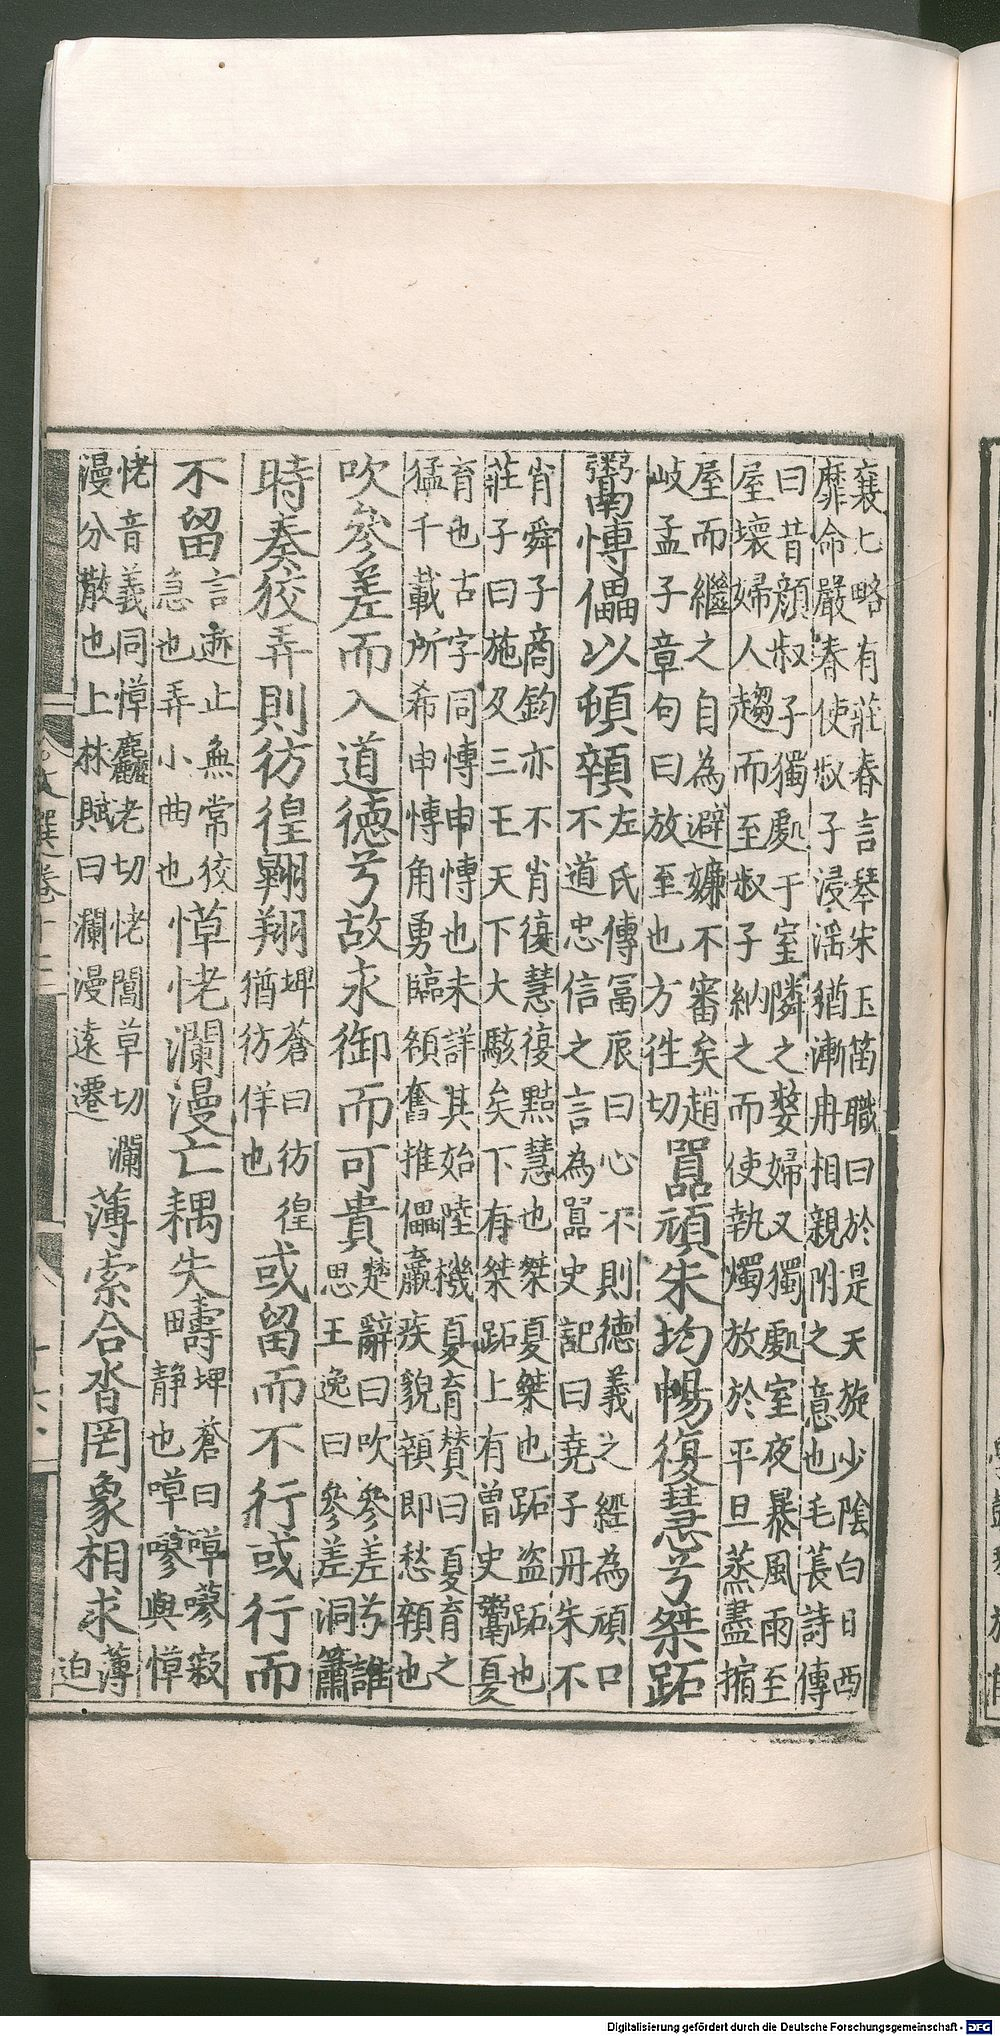 襄七略有莊春言琴宋玉笛職曰於是天旋少陰白日西
靡命嚴春使叔子浸淫猶漸冉相親附之意也毛萇詩傳
曰昔顏叔子獨處于室隣之嫠婦又獨處室夜暴風雨至
屋壞婦人趨而至叔子納之而使執燭放於平旦蒸盡摍
屋而繼之自為避嫌不審矣趙
岐孟子章句曰放至也方徃切
嚚頑朱均惕復慧兮桀跖
鬻慱儡以頓顇
左氏傳冨辰曰心不則德義之經為頑口
不道忠信之言為嚚史記曰堯子丹朱不
肖舜子商鈞亦不肖復慧復黠慧也桀夏桀也跖盗跖也
莊子曰施及三王天下大駭矣下有桀跖上有曾史鬻夏
育也古字同慱申慱也未詳其始陸機夏育賛曰夏育之
猛千載所希申慱角勇臨額奮推儡羸疾貌顇即愁顇也
吹參差而入道德兮故永御而可貴
楚辭曰吹參差兮誰
思王逸曰參差洞簫
時奏狡弄則彷徨翱翔
埤蒼曰彷徨
猶彷徉也
或留而不行或行而
不留
言逝止無常狡
急也弄小曲也
愺恅瀾漫亡耦失疇
埤蒼曰嘾嘐寂
静也嘾嘐與愺
恅音義同愺麤老切恅閭草切瀾
漫分散也上林賦曰瀾漫遠遷
薄索合沓罔象相求
薄
迫
文選卷十
Digitalisierung gefördert durch die Deutsche Forschungsgemeinschaft - DFG